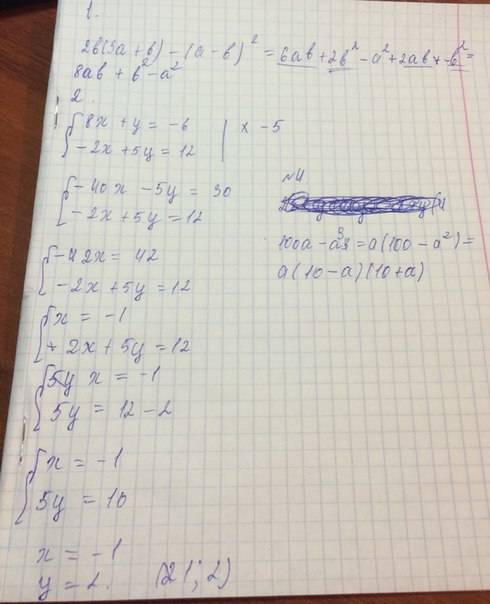 1.
2b(3a+b) - (a-b)² = 6ab + 2b² - a² + 2ab - b² =
8ab + b² - a²
2.
{8x + y = -6 | x -5
{-2x + 5y = 12
{-40x - 5y = 30
{-2x + 5y = 12
{-42x = 42
{-2x + 5y = 12
{x = -1
{+2x + 5y = 12
{5y x = -1
{5y = 12 - 2
{x = -1
{5y = 10
x = -1
y = 2. (-1; 2)
№4
100a - a³ = a(100 - a²) =
a(10-a)(10+a)